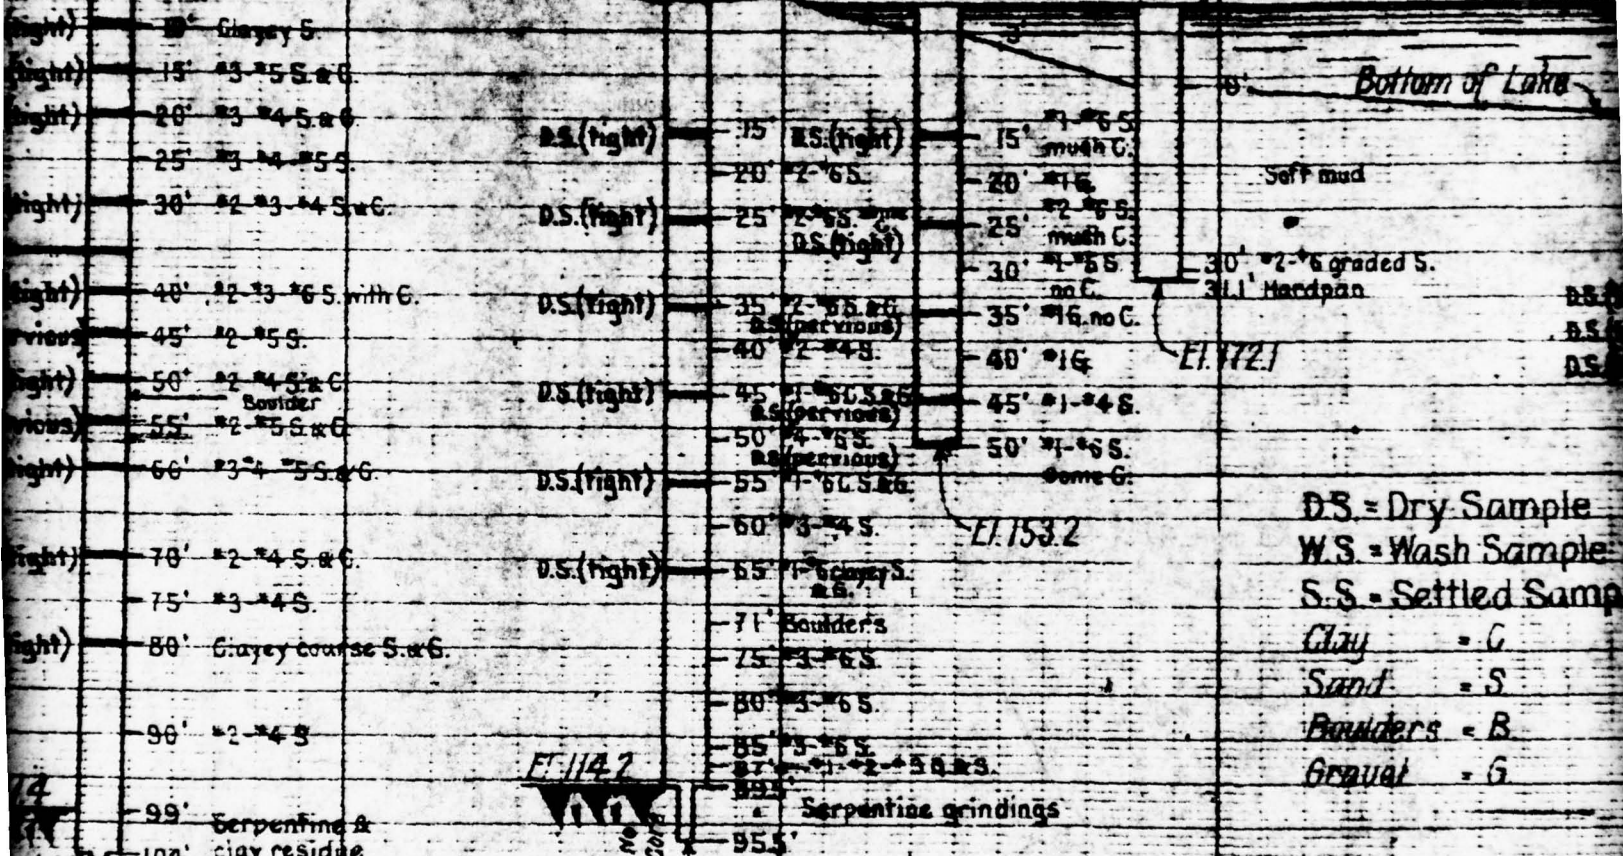 10' Clayey S.
15' #3-#5 S. & G.
20' #3-#4 S. & G.
25' #3-#4-#5 S.
30' #2-#3-#4 S. & C.
40' #2-#3-#6 S. with C.
45' #2-#5 S.
50' #2-#4 S. & C
Boulder
55' #2-#5 S. & G
60' #3-4-#5 S. & G.
70' #2-#4 S. & C.
75' #3-#4 S.
80' Clayey course S. & G.
90' #2-#4 S
99' Serpentine &
clay residue
100'
D.S.(tight) 15'
20' #2-#6 S.
D.S.(tight) 25' #2-#6 S.
D.S.(tight) 35' #2-#6 S. & G.
40' #2-#4 S.
D.S.(tight) 45'
50' #4-#6 S.
D.S.(tight) 55'
60' #3-#4 S.
D.S.(tight) 65' #1-#6 clayey S.
& G.
71' Boulders
75' #3-#6 S.
80' #3-#6 S.
85' #3-#6 S.
87'
El. 114.2
89.5'
Serpentine grindings
No core
95.5'
3'
D.S.(tight) 15' #1-#6 S.
much C.
20' #1 G.
D.S.(tight) 25' #2-#6 S.
much C.
30' #1-#6 S.
no C.
D.S.(pervious) 35' #1 G. no C.
40' #1 G
D.S.(pervious) 45' #1-#4 S.
D.S.(pervious) 50' #1-#6 S.
some G.
El. 153.2
Bottom of Lake
Soft mud
30' #2-#6 graded S.
31.1' Hardpan
El. 172.1
D.S.
D.S.
D.S.
D.S. = Dry Sample
W.S. = Wash Sample
S.S. = Settled Samp
Clay = C
Sand = S
Boulders = B.
Gravel = G